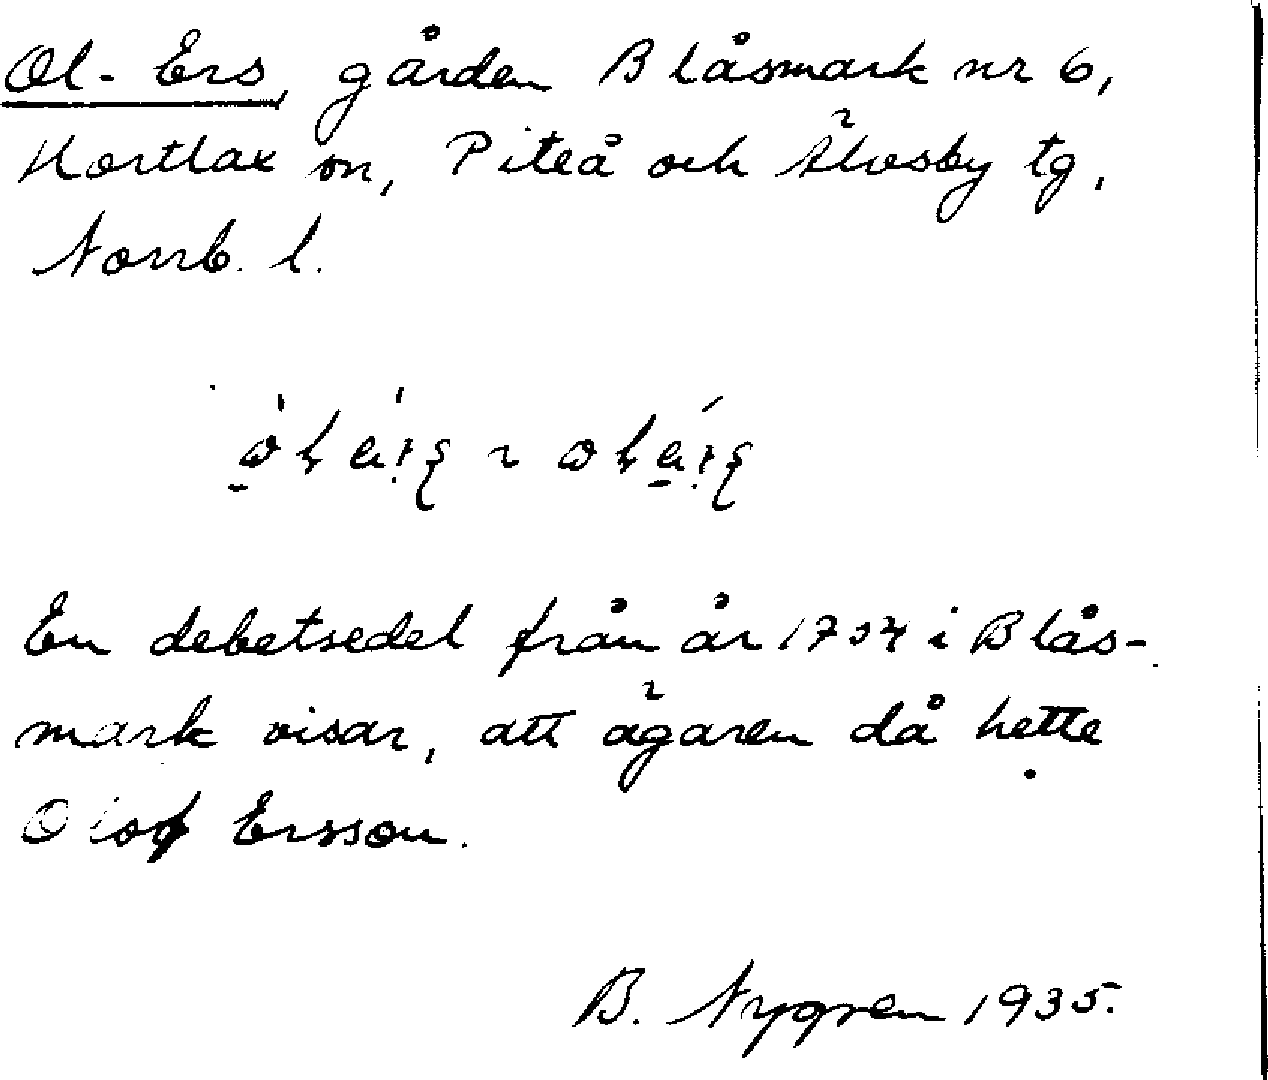 Ol-Ers, gården Blåsmark nr 6,
Hortlax sn, Piteå och Älvsby tg,
Norrb. l.
En debetsedel från år 1734 i Blås-
mark visar, att ägaren då hette
Olof Ersson.
B. Nygren 1935.